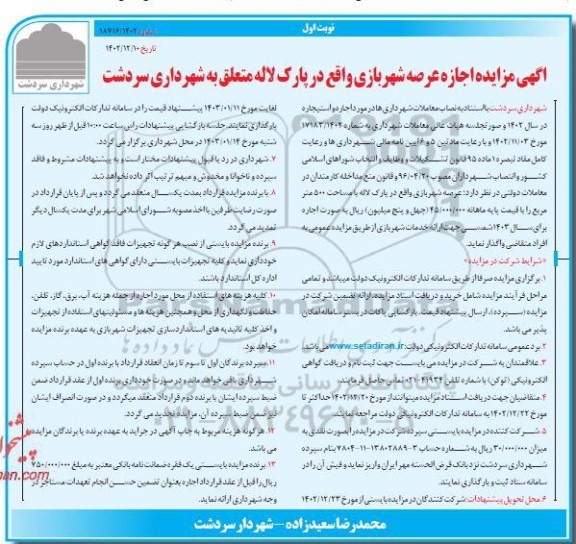 نوبت اول
شماره ۱۸۴۱۶/۱۴۰۲
تاریخ ۱۴۰۲/۱۲/۱۰
شهرداری سردشت
آگهی مزایده اجازه عرصه شهربازی واقع در پارک لاله متعلق به شهرداری سردشت
شهرداری سردشت با استناد به نصاب معاملات شهرداری ها در مورد اجاره و استیجاره
در سال ۱۴۰۲ و صورتجلسه هیات عالی معاملات شهرداری به شماره ۱۷۱۸۳/۱۴۰۲
مورخ ۱۴۰۲/۱۱/۰۳ و با رعایت مادتین ۵ و ۶ آیین نامه مالی شهرداری ها و رعایت
کامل مفاد تبصره ۱ ماده ۹۵ قانون تشکیلات و وظایف و انتخاب شوراهای اسلامی
کشور و انتصاب شهرداران مصوب ۹۶/۰۴/۲۰ و قانون منع مداخله کارمندان در
معاملات دولتی در نظر دارد: عرصه شهربازی واقع در پارک لاله با مساحت ۵۰۰ متر
مربع را با قیمت پایه ماهانه ۴۵/۰۰۰/۰۰۰ (چهل و پنج میلیون) ریال به صورت اجاره
برای سال ۱۴۰۳ شمسی جهت ارائه خدمات شهربازی از طریق مزایده عمومی به
افراد متقاضی واگذار نماید.
* شرایط شرکت در مزایده *
۱. برگزاری مزایده صرفا از طریق سامانه تدارکات الکترونیک دولت میباشد و تمامی
مراحل فرآیند مزایده شامل خرید و دریافت اسناد مزایده، ارائه تضمین شرکت در
مزایده (سپرده)، ارسال پیشنهاد قیمت، بازگشایی پاکات در بستر سامانه امکان
پذیر می باشد.
۲. برد عمومی سامانه تدارکات الکترونیکی دولت: www.setadiran.ir می باشد.
۳. علاقمندان به شرکت در مزایده می بایست جهت ثبت نام و دریافت گواهی
الکترونیکی (توکن) با شماره تلفن ۴۱۹۳۴-۰۲۱ تماس حاصل فرمایند.
۴. متقاضیان جهت دریافت اسناد مزایده میتوانند از مورخ ۱۴۰۲/۱۲/۲۰ حداکثر تا
مورخ ۱۴۰۲/۱۲/۲۲ به سامانه تدارکات الکترونیکی دولت مراجعه نمایند.
۵. شرکت کننده در مزایده بایستی سپرده شرکت در مزایده را بصورت نقدی به
میزان ۳۰/۰۰۰/۰۰۰ ریال به شماره حساب ۳-۱۳۸۰۲۸۸۹-۱۱-۷۸۰۴ بنام سپرده
شهرداری سردشت نزد بانک قرض الحسنه مهر ایران واریز نماید و فیش آن را در
سامانه ستاد ثبت و بارگذاری نمایند.
۶. محل تحویل پیشنهادات: شرکت کنندگان در مزایده بایستی از مورخ ۱۴۰۲/۱۲/۲۳
لغایت مورخ ۱۴۰۳/۰۱/۱۱ پیشنهاد قیمت را در سامانه تدارکات الکترونیک دولت
بارگذاری نمایند. جلسه بازگشایی پیشنهادات راس ساعت ۱۰:۰۰ قبل از ظهر روز سه
شنبه مورخ ۱۴۰۳/۰۱/۱۴ در محل شهرداری برگزار می گردد.
۷. شهرداری در رد یا قبول پیشنهادات مختار است و به پیشنهادات مشروط و فاقد
سپرده و ناخوانا و مخدوش و مبهم ترتیب اثر داده نخواهد شد.
۸. با برنده مزایده قرارداد بمدت یکسال منعقد می گردد و پس از پایان قرارداد در
صورت رضایت طرفین با اخذ مصوبه شورای اسلامی شهر برای مدت یکسال دیگر
تمدید می گردد.
۹. برنده مزایده بایستی از نصب هر گونه تجهیزات فاقد گواهی استانداردهای لازم
خودداری نماید و کلیه تجهیزات بایستی دارای گواهی های استاندارد مورد تایید
اداره کل استاندارد باشند.
۱۰. کلیه هزینه های استفاده از محل مورد اجاره از جمله هزینه آب، برق، گاز، تلفن،
حفاظت و نگهداری از محل و همچنین هزینه ها و مسئولیتهای استفاده از تجهیزات
و اخذ کلیه تائیدیه های استانداردسازی تجهیزات شهربازی به عهده برنده مزایده
خواهد بود.
۱۱. سپرده برندگان اول تا سوم تا زمان انعقاد قرارداد با برنده اول در حساب سپرده
شهرداری باقی خواهد ماند و در صورت خودداری برنده اول از عقد قرارداد ضمن
ضبط سپرده ایشان با برنده دوم قرارداد منعقد میگردد و در صورت انصراف ایشان
نیز ضمن ضبط سپرده آن، مزایده تجدید می گردد.
۱۲. هر گونه هزینه مربوط به چاپ آگهی در جراید به عهده برنده یا برندگان مزایده
می باشد.
۱۳. برنده مزایده بایستی یک فقره ضمانت نامه بانکی معتبر به مبلغ ۷۵۰/۰۰۰/۰۰۰
ریال را قبل از عقد قرارداد اجاره بعنوان تضمین حسن انجام تعهدات مستاجر در
وجه شهرداری ارائه نماید.
محمدرضا سعیدزاده - شهردار سردشت